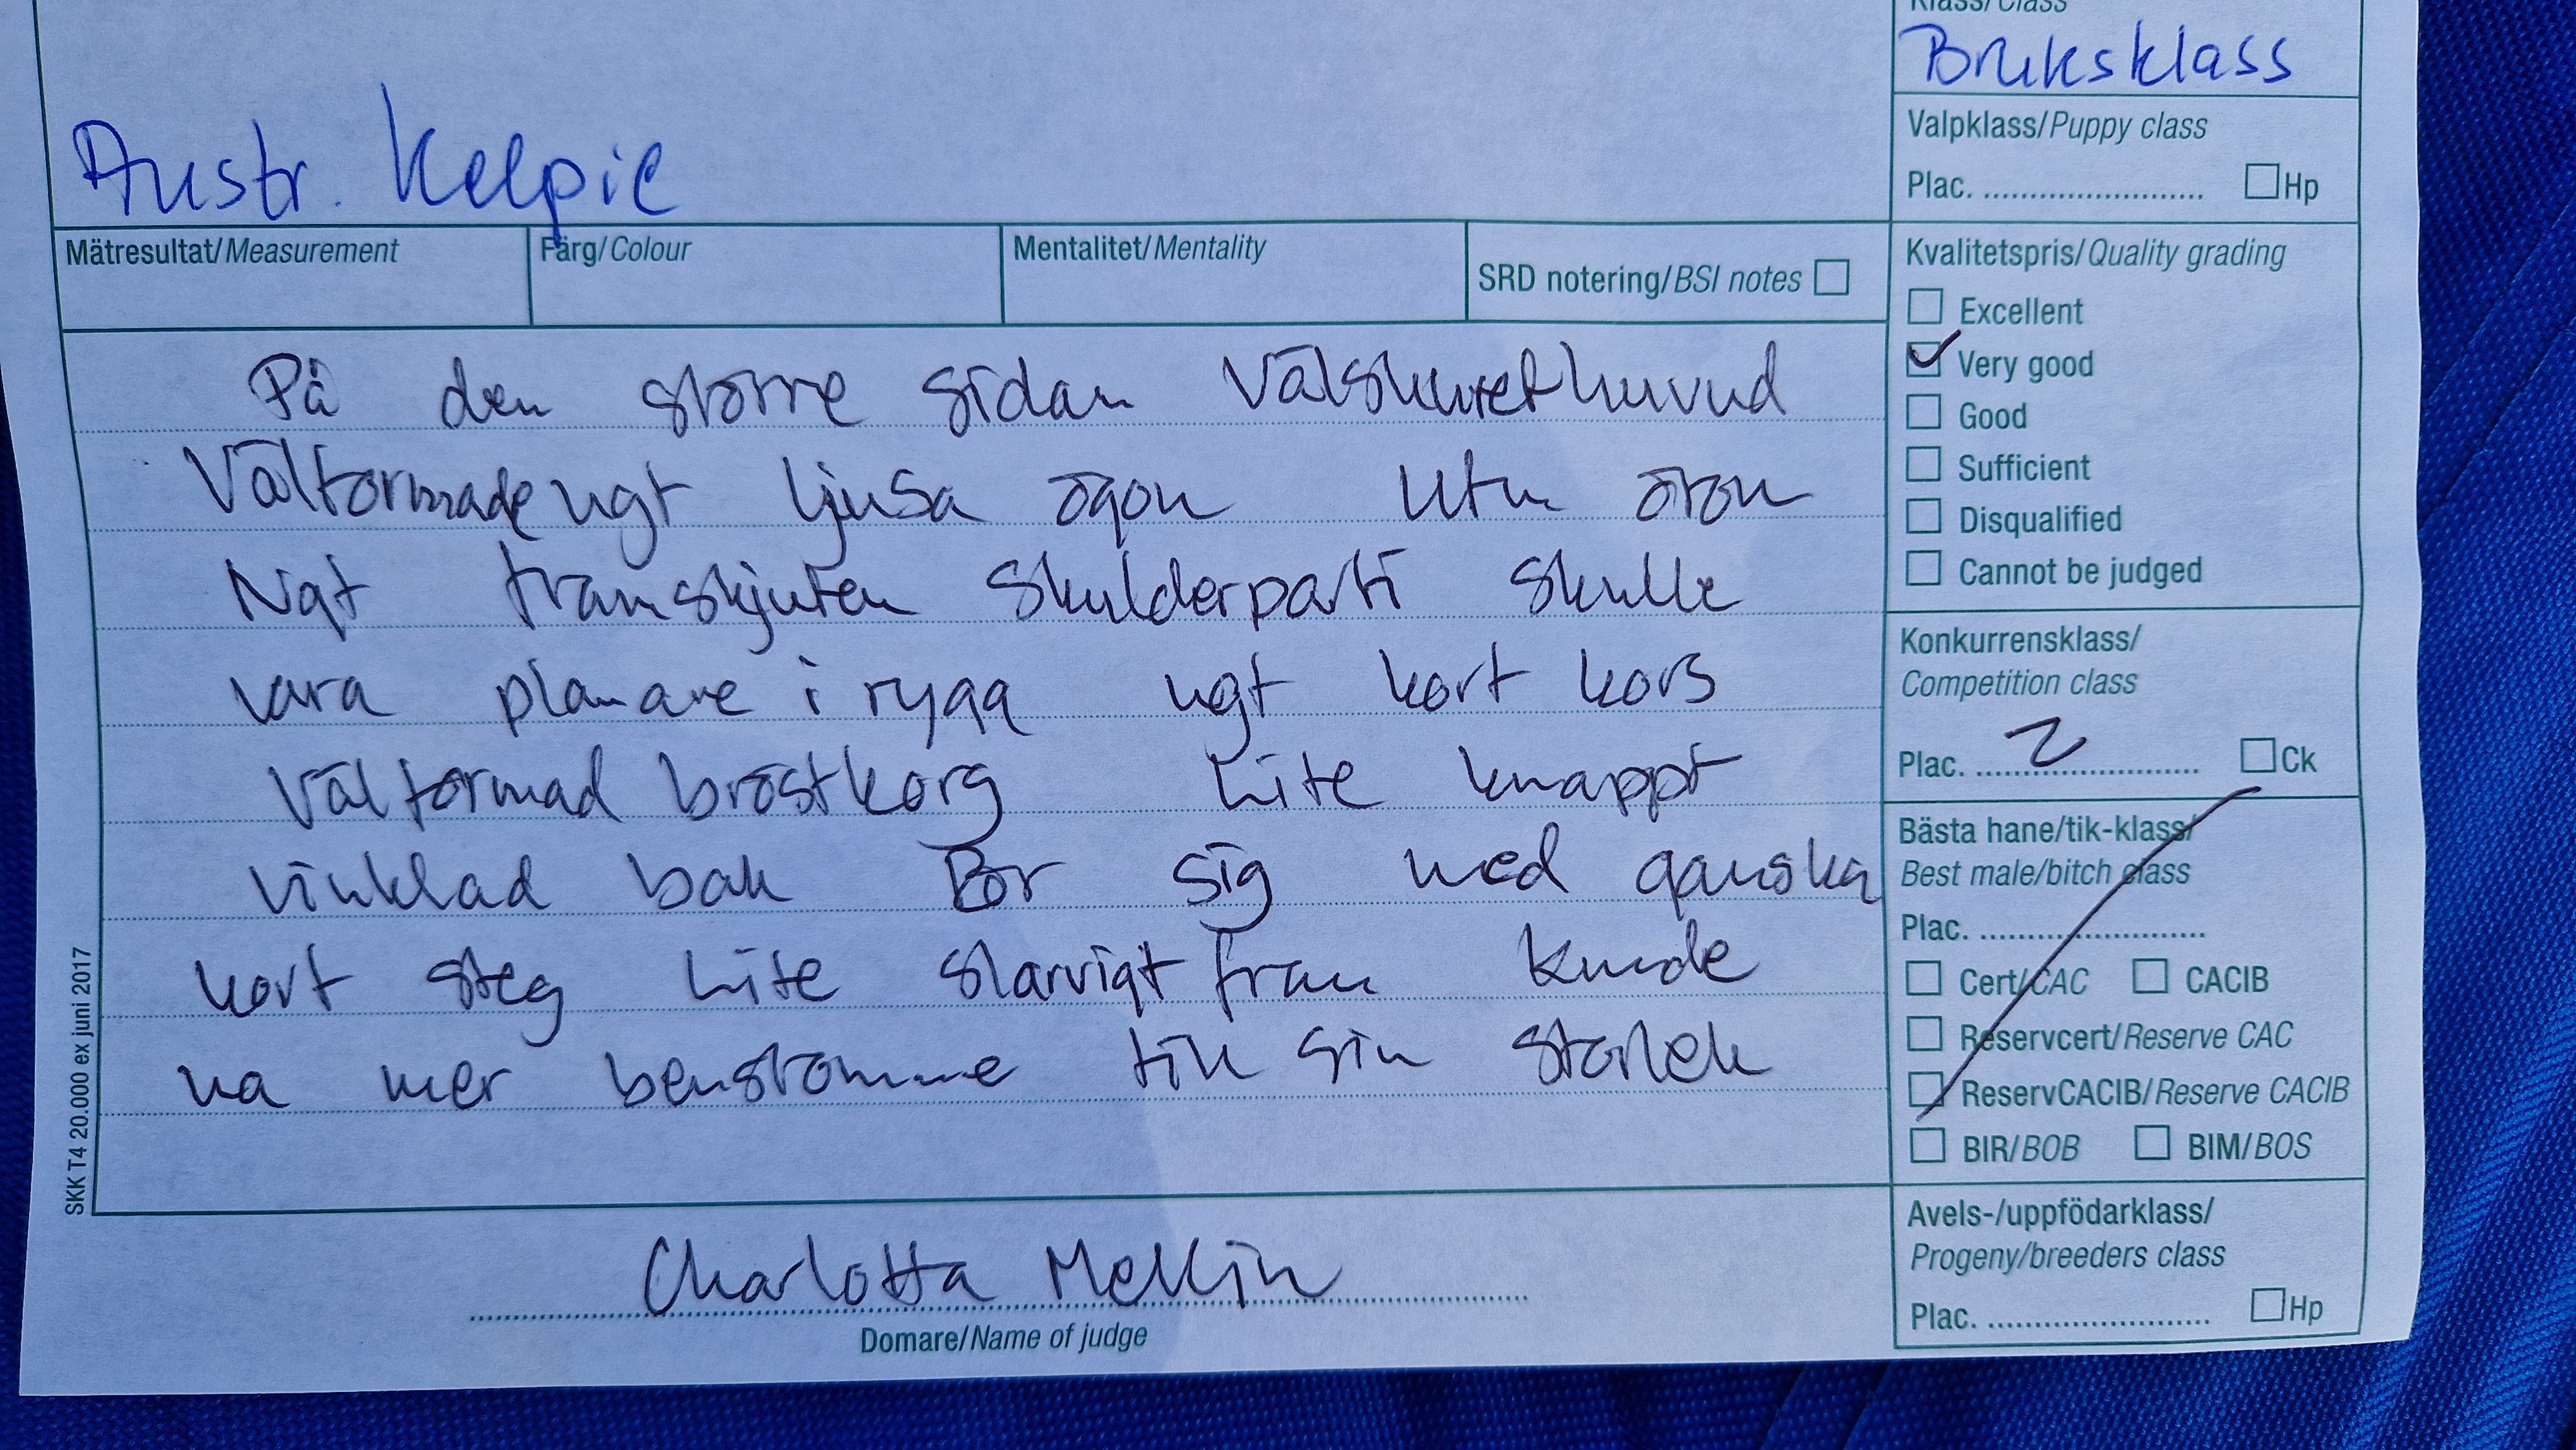 Klass/Class
Bruksklass
Austr. Kelpie
Valpklass/Puppy class
Plac. ☐Hp
Mätresultat/Measurement Färg/Colour Mentalitet/Mentality SRD notering/BSI notes ☐
På den större sidan Välskuret huvud
Välformade ngt ljusa ögon Utm öron
Ngt framskjuten skulderparti skulle
vara planare i rygg ngt kort kors
Välformad bröstkorg Lite knappt
vinklad bak Rör sig med ganska
kort steg Lite slarvigt fram Kunde
ha mer benstomme till sin storlek
Kvalitetspris/Quality grading
☐ Excellent
☑ Very good
☐ Good
☐ Sufficient
☐ Disqualified
☐ Cannot be judged
Konkurrensklass/
Competition class
Plac. 2 ☐Ck
Bästa hane/tik-klass/
Best male/bitch class
Plac.
☐ Cert/CAC ☐ CACIB
☐ Reservcert/Reserve CAC
☐ ReservCACIB/Reserve CACIB
☐ BIR/BOB ☐ BIM/BOS
Avels-/uppfödarklass/
Progeny/breeders class
Plac. ☐Hp
Charlotta Mellin
Domare/Name of judge
SKK T4 20.000 ex juni 2017